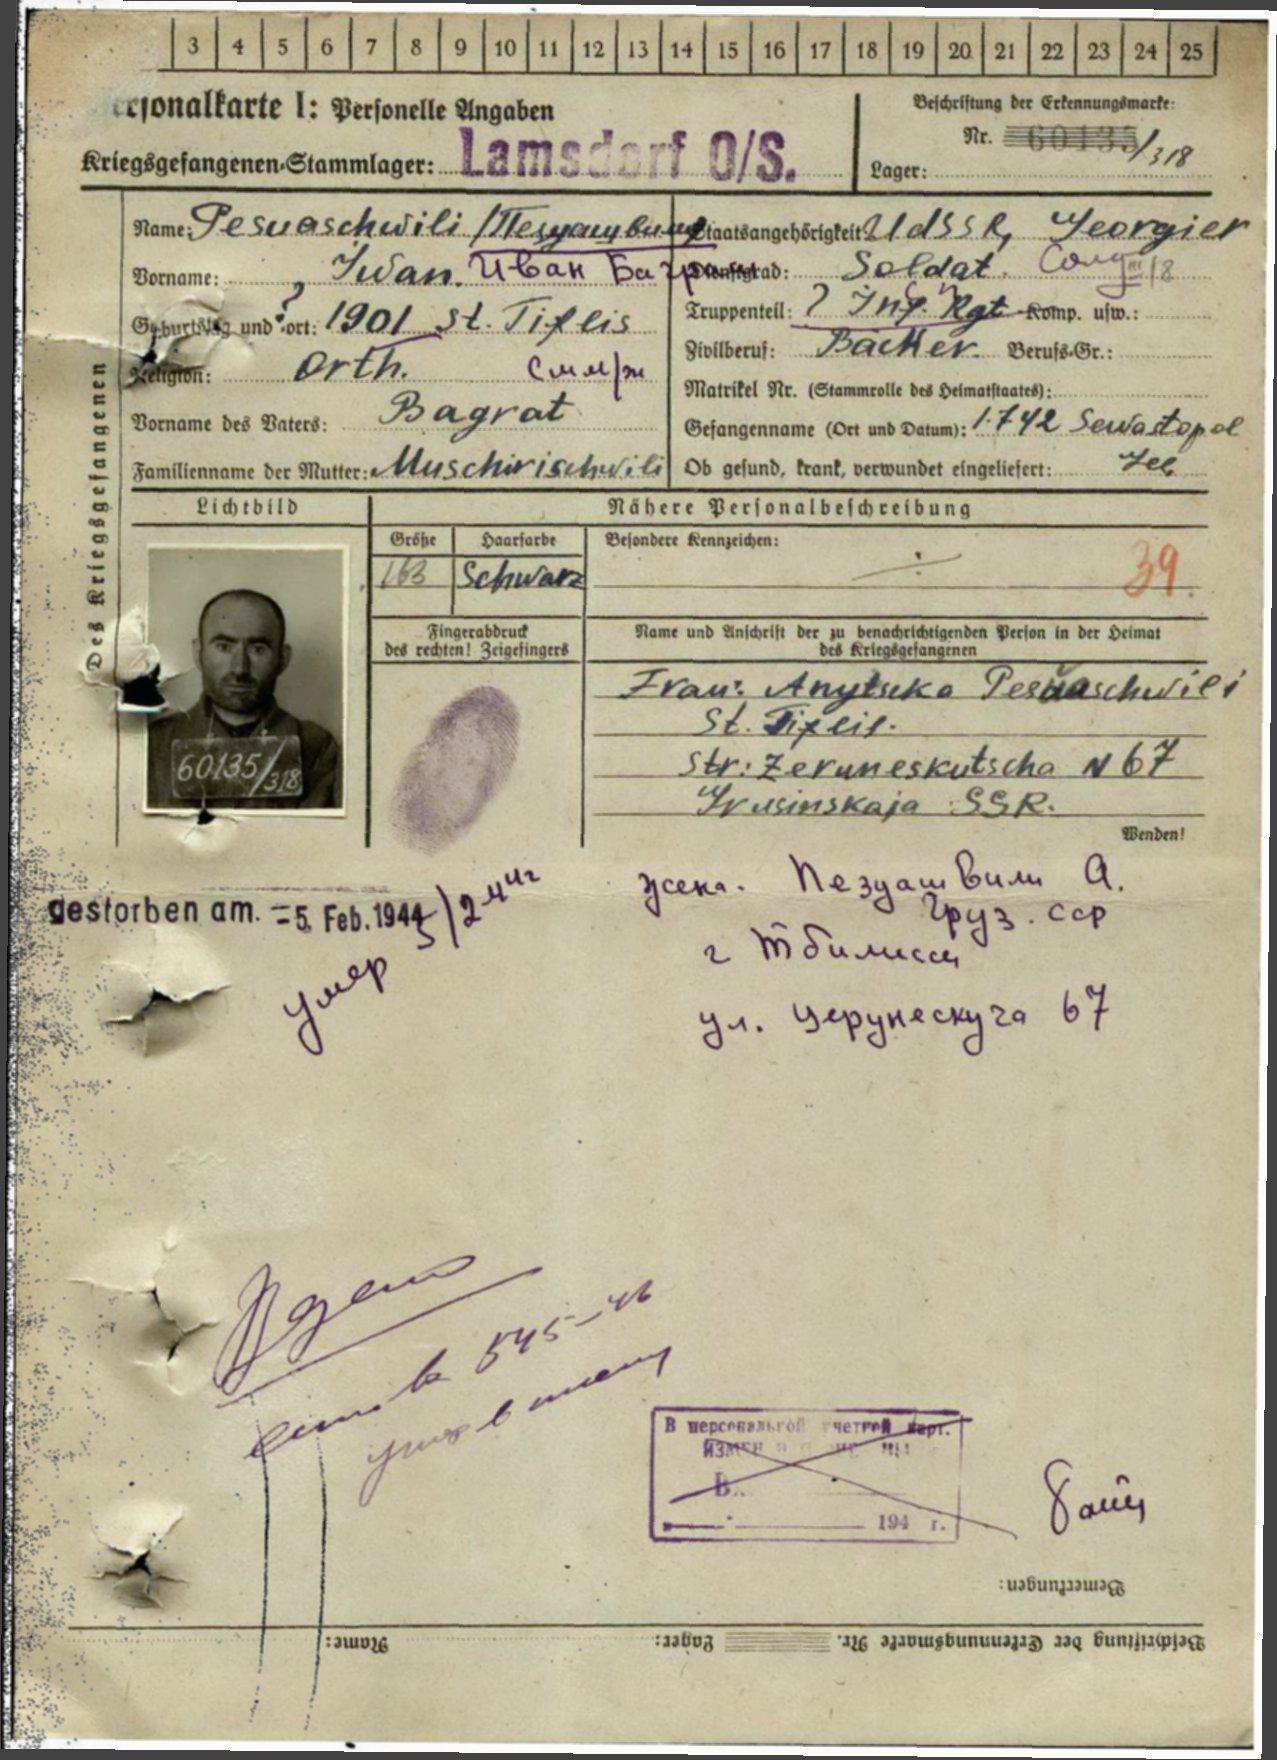 3 4 5 6 7 8 9 10 11 12 13 14 15 16 17 18 19 20 21 22 23 24 25
Personalkarte I: Personelle Angaben
Kriegsgefangenen-Stammlager: Lamsdorf O/S.
Beschriftung der Erkennungsmarke:
Nr. 60135/318
Lager:
Des Kriegsgefangenen
Name: Pesuaschwili /Пезуашвили
Vorname: Iwan. Иван Баграт
Geburtstag und -ort: ? 1901 St. Tiflis
Religion: Orth.
Vorname des Vaters: Bagrat
Familienname der Mutter: Muschirischwili
Staatsangehörigkeit: UdSSR, Georgier
Dienstgrad: Soldat. Солд III/8
Truppenteil: ? Inf. Rgt. Komp. usw.:
Zivilberuf: Bäcker. Berufs-Gr.:
Matrikel Nr. (Stammrolle des Heimatstaates):
Gefangenname (Ort und Datum): 1.7 42 Sewastopol
Ob gesund, krank, verwundet eingeliefert:
Lichtbild
Nähere Personalbeschreibung
Größe
Haarfarbe
Besondere Kennzeichen:
163
Schwarz
39
60135/318
Fingerabdruck
des rechten! Zeigefingers
Name und Anschrift der zu benachrichtigenden Person in der Heimat
des Kriegsgefangenen
Frau: Anytska Pesuaschwili
St. Tiflis.
Str: Zeruneskutscha N 67
Grusinskaja SSR.
Wenden!
gestorben am. -5. Feb. 1944
умер 5/2 44г
жена. Пезуашвили А.
Груз. сср
г Тбилиси
ул. Церунескуча 67
545-46
В персональной учетной карт.
В
194 г.
Bemerkungen:
Beschriftung der Erkennungsmarke Nr.
Lager:
Name: